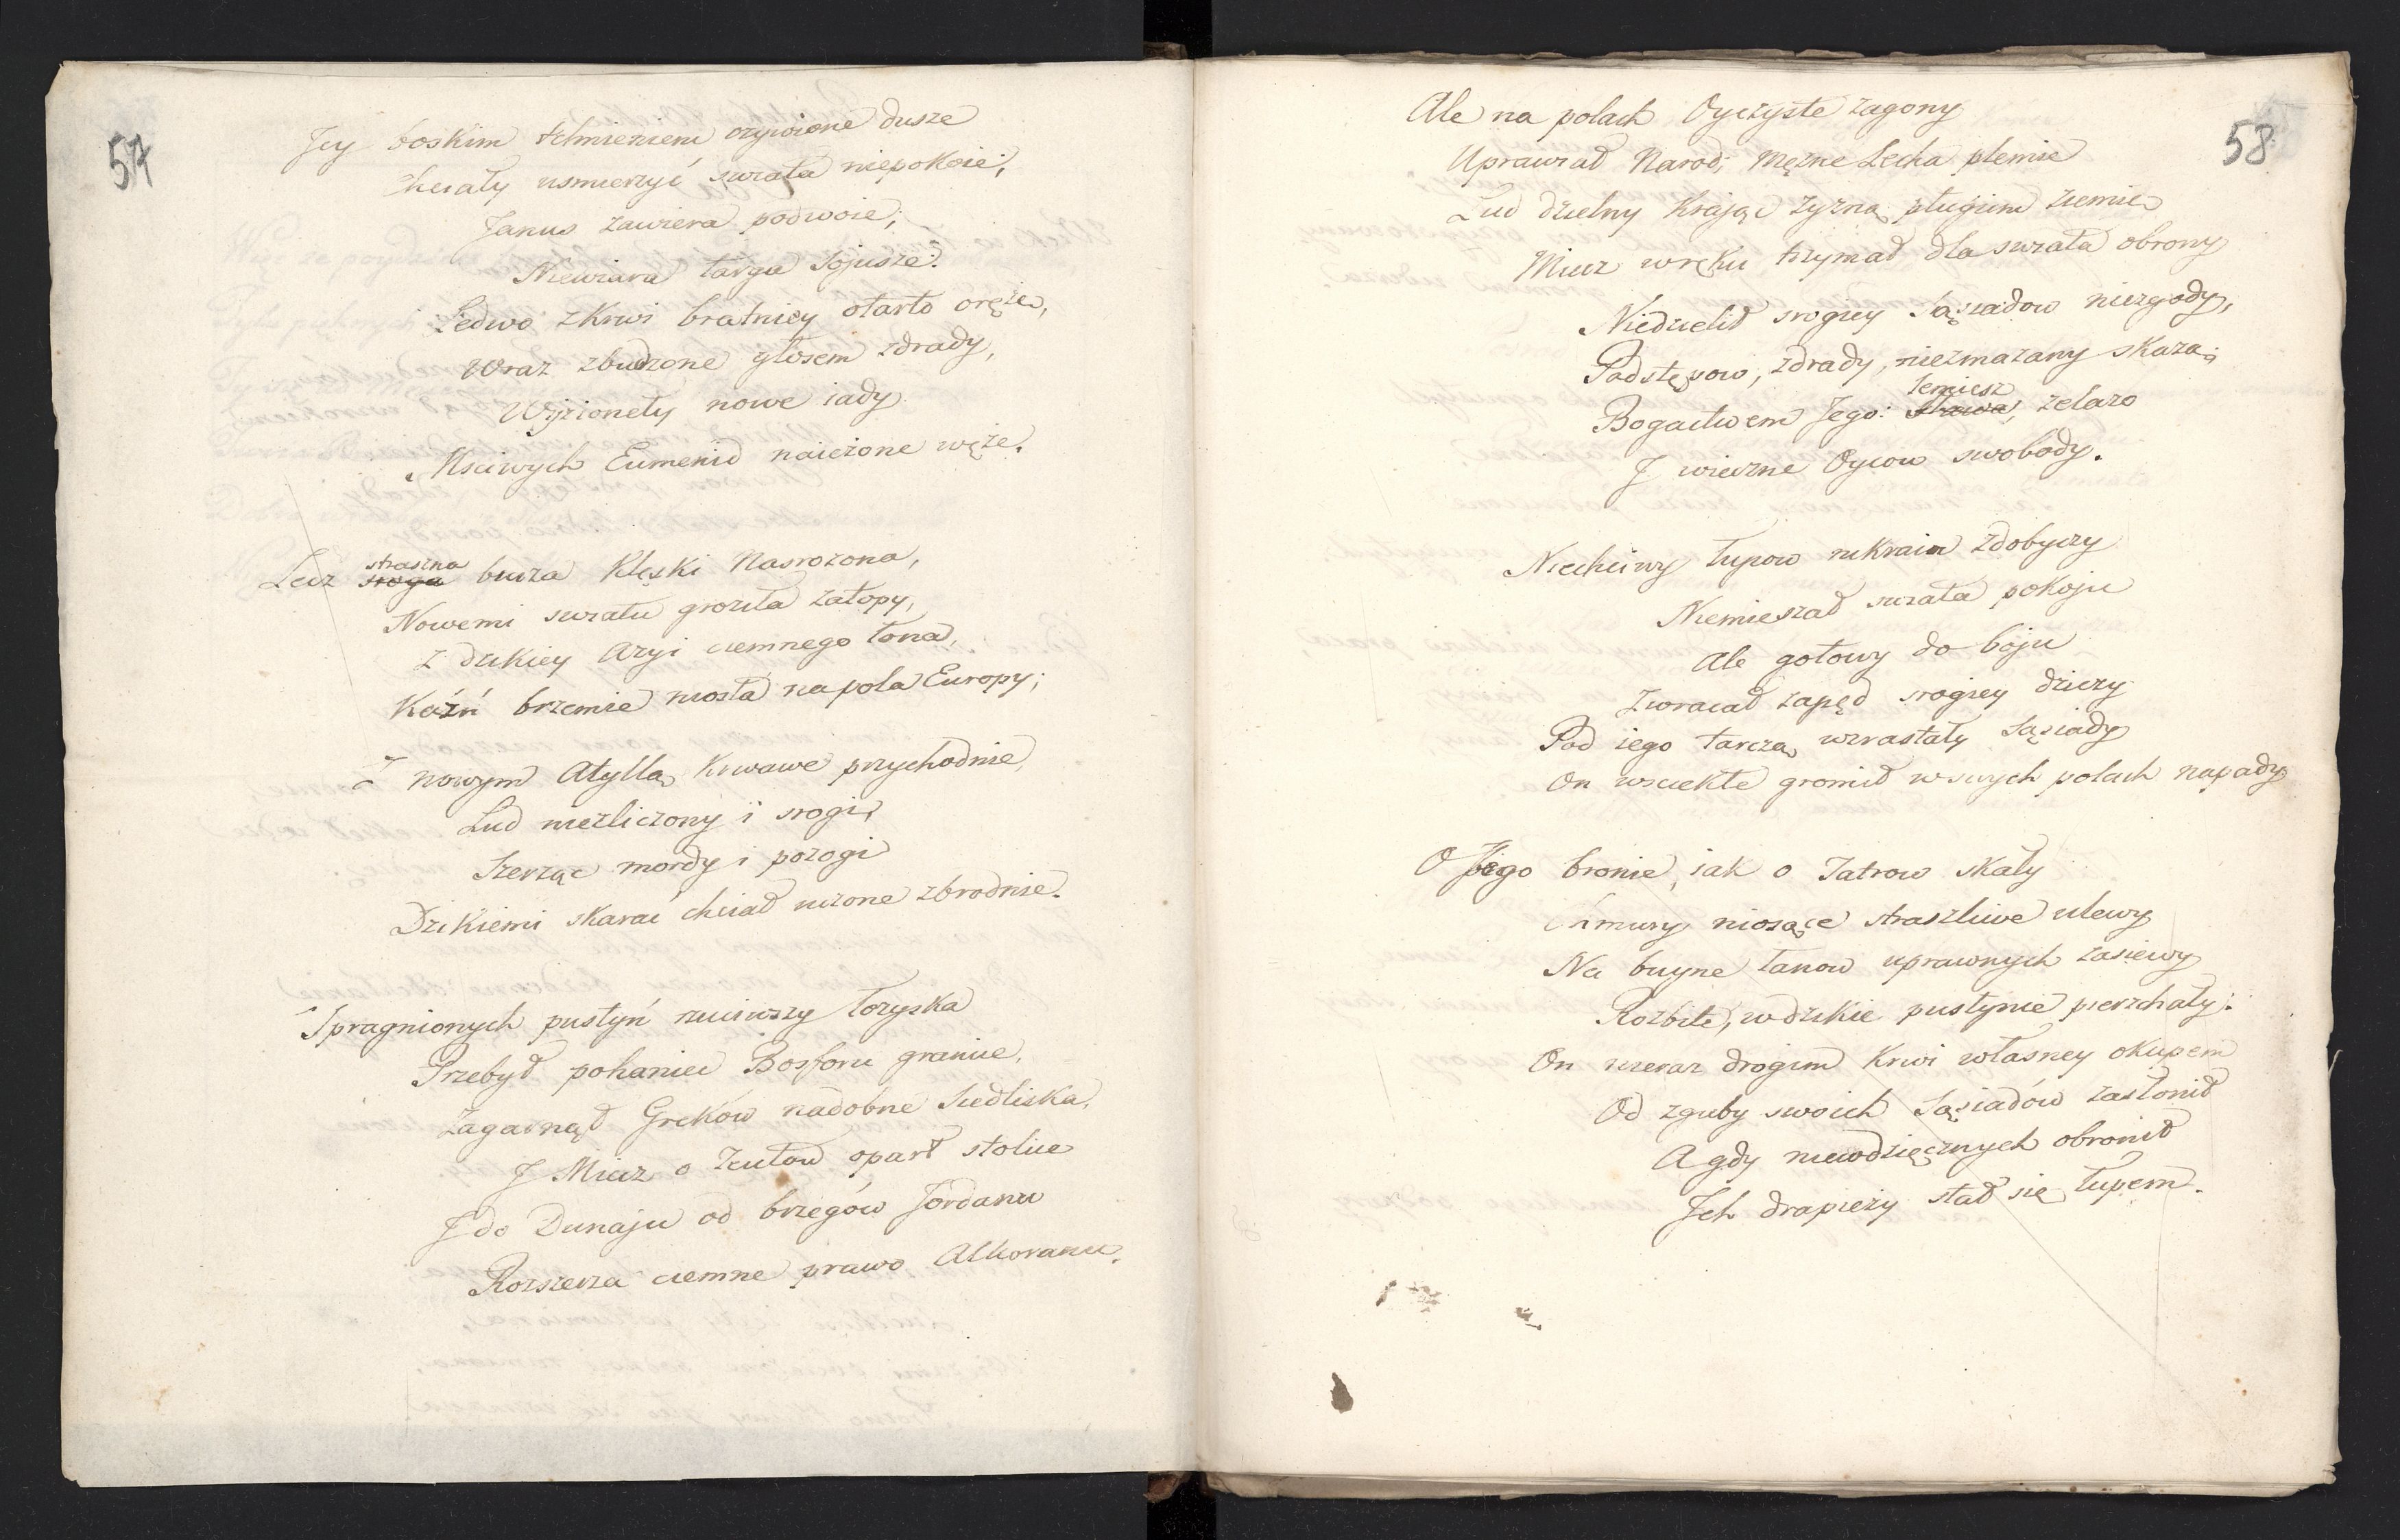 57
Jey boskim tchnieniem ozywione dusze
Chciały usmierzyć swiata niepokoie;
Janus zawiera podwoie;
Niewiara targa sojusze.
Ledwo z krwi bratniey otarto oręże,
Wraz zbudzone głosem zdrady,
Wyzionęły nowe iady
Msciwych Eumenid naieżone węże.
Lecz straszna sroga burza klęski nasrożona,
Nowemi swiatu groziła zatopy,
Z dzikiey Azyi ciemnego łona,
Kaźń brzemie niosła na pola Europy;
Z nowym Atyllą krwawe przychodnie,
Lud niezliczony i srogi,
Szerząc mordy i pozogi
Dzikiemi skarać chciał uczone zbrodnie.
Spragnionych pustyń rzuciwszy łożyska
Przebył pohaniec Bosforu granice,
Zagarnął Greków nadobne siedliska,
J Miecz o Teutów oparł stolice
J do Dunaju od brzegów Jordanu
Rozszerza ciemne prawo Alkoranu.
58
Ale na polach Oyczyste zagony
Uprawiał Narod; Mężne Lecha plemie
Lud dzielny krając żyzną pługiem ziemie
Miecz w ręku trzymał dla swiata obrony
Niedzielił srogiey Sąsiadow niezgody,
Podstępow, zdrady, niezmazany skazą;
Bogactwem Jego: lemiesz sława, żelazo
J wieczne Oycow swobody.
Niechciwy łupow ni krain zdobyczy
Niemieszał swiata pokoju
Ale gotowy do boju
Zwracał zapęd srogiey dziczy
Pod iego tarczą wzrastały Sąsiady
On wsciekłe gromił w swych polach napady
O Jego bronie, iak o Tatrow skały
Chmury niosące straszliwe ulewy
Na buyne łanow uprawnych zasiewy
Rozbite, w dzikie pustynie pierzchały:
On nieraz drogim krwi własney okupem
Od zguby swoich Sąsiadów zasłonił
A gdy niewdzięcznych obronił
Jch drapieży stał się łupem.